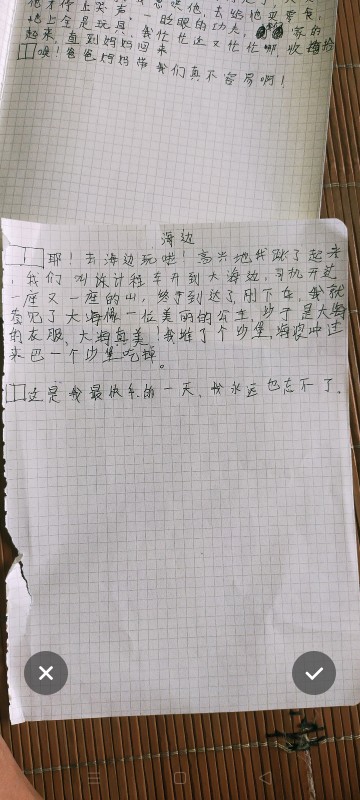 地上全是玩具,一眨眼的功夫,
起来,直到妈妈回来
唉!爸爸妈妈带我们真不容易啊!
海边
耶!去海边玩啦!高兴地我跳了起来
,我们叫设计程车开到大海边,司机开过
一座又一座的山,终于到达了,刚下车,我就
看见了大海像一位美丽的公主,步于是大海
的衣服、大海真美!我堆了个沙堡,海浪冲过
来巴一个沙堡吃掉
。
这是我最快乐的一天、我永远也忘不了.